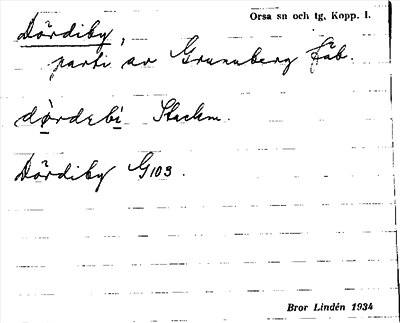 Orsa sn och tg, Kopp. l.
Dördiby,
parti av Grunuberg fäb.
dørdebi Stackm.
Dördiby G103.
Bror Lindén 1934